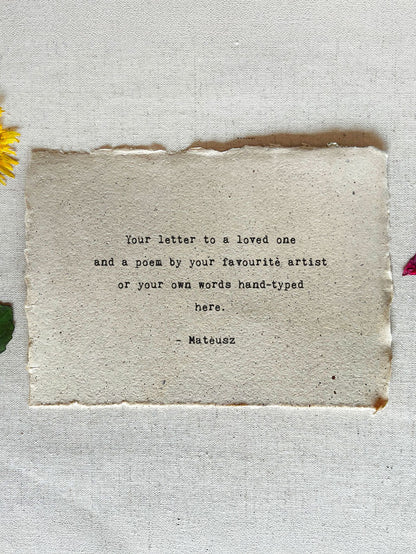 Your letter to a loved one
and a poem by your favouritė artist
or your own words hand-typed
here.
- Matėusz